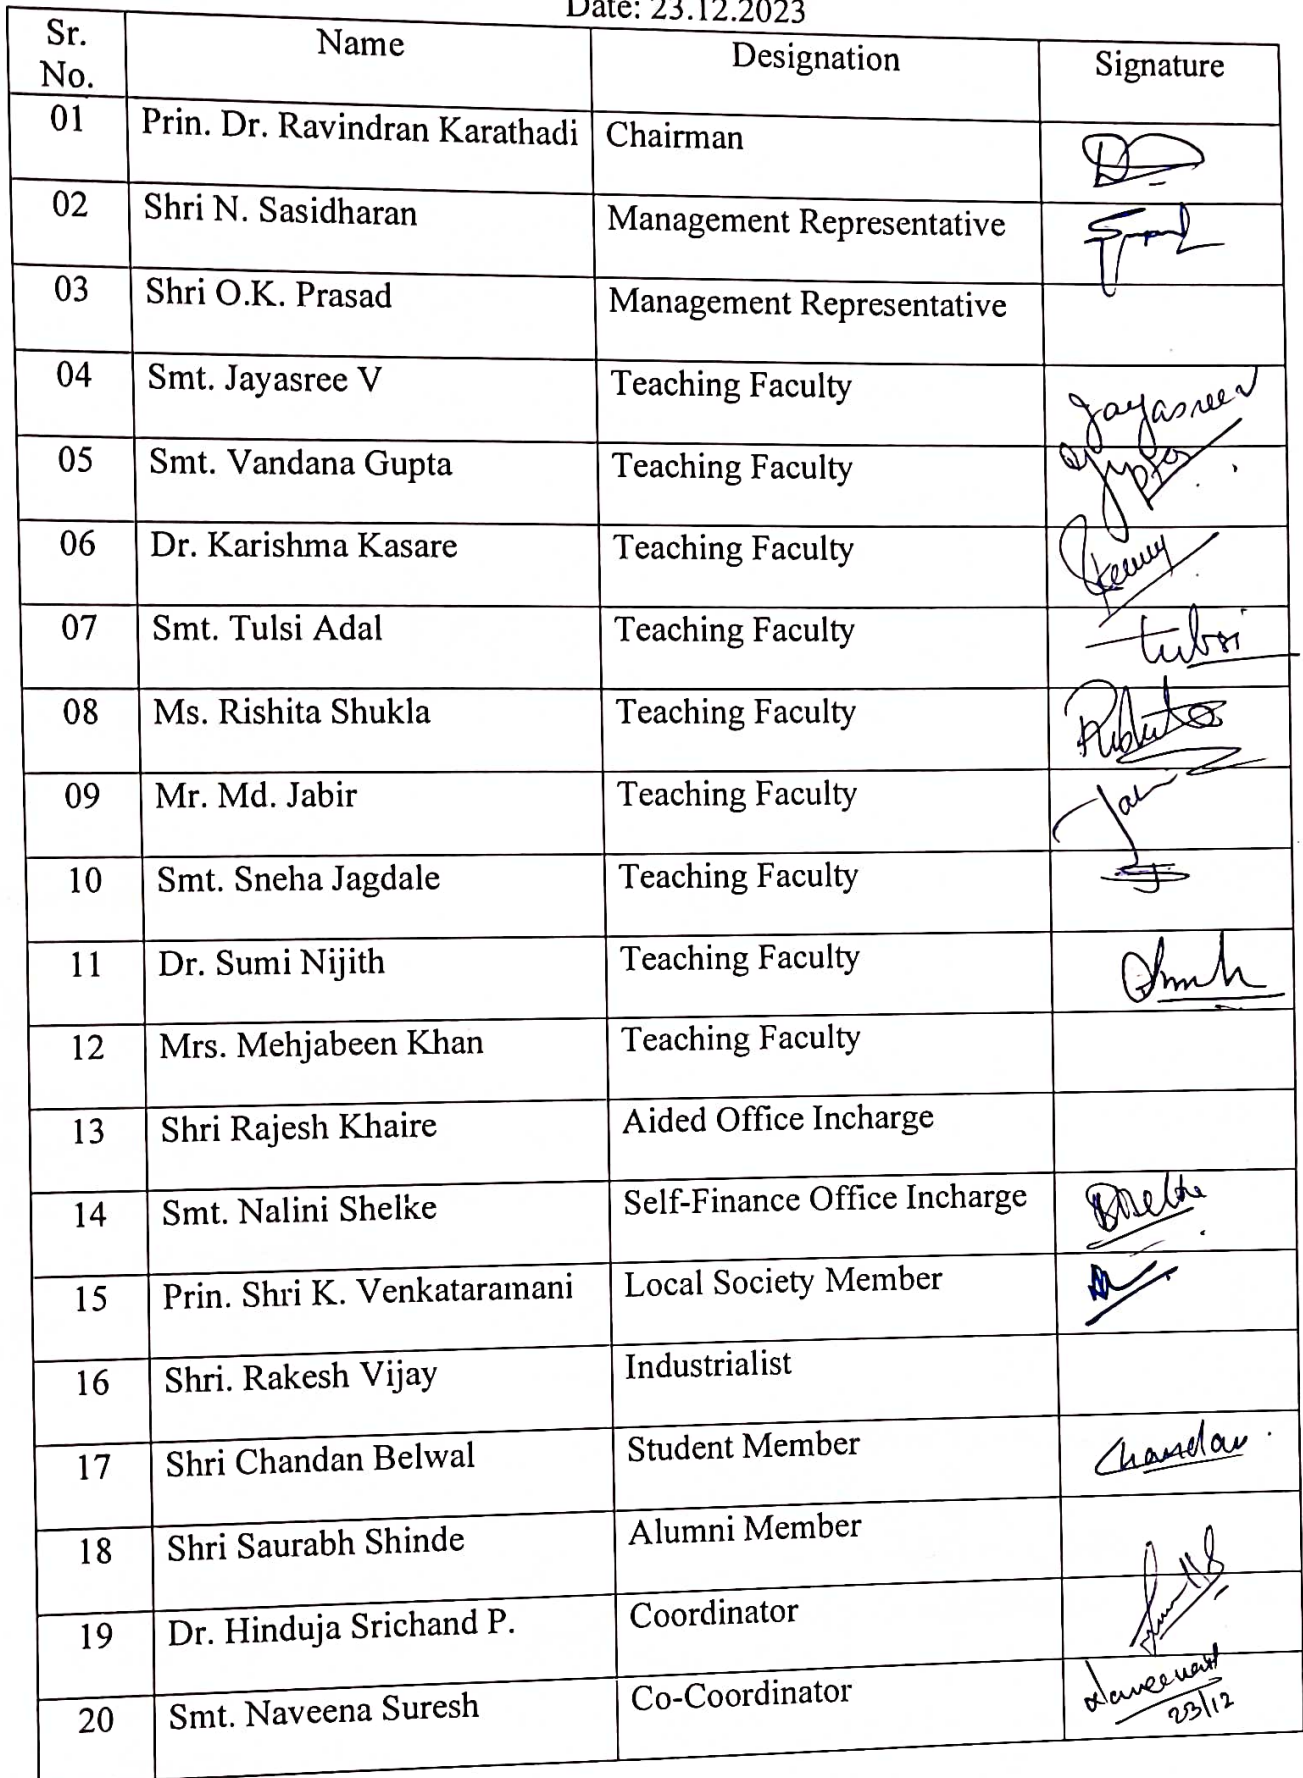 Date: 23.12.2023
Sr. No. Name Designation Signature
01 Prin. Dr. Ravindran Karathadi Chairman
02 Shri N. Sasidharan Management Representative
03 Shri O.K. Prasad Management Representative
04 Smt. Jayasree V Teaching Faculty Jayasree V
05 Smt. Vandana Gupta Teaching Faculty Gupta
06 Dr. Karishma Kasare Teaching Faculty
07 Smt. Tulsi Adal Teaching Faculty Tulsi
08 Ms. Rishita Shukla Teaching Faculty
09 Mr. Md. Jabir Teaching Faculty
10 Smt. Sneha Jagdale Teaching Faculty
11 Dr. Sumi Nijith Teaching Faculty
12 Mrs. Mehjabeen Khan Teaching Faculty
13 Shri Rajesh Khaire Aided Office Incharge
14 Smt. Nalini Shelke Self-Finance Office Incharge
15 Prin. Shri K. Venkataramani Local Society Member
16 Shri. Rakesh Vijay Industrialist
17 Shri Chandan Belwal Student Member Chandan
18 Shri Saurabh Shinde Alumni Member
19 Dr. Hinduja Srichand P. Coordinator
20 Smt. Naveena Suresh Co-Coordinator
23/12